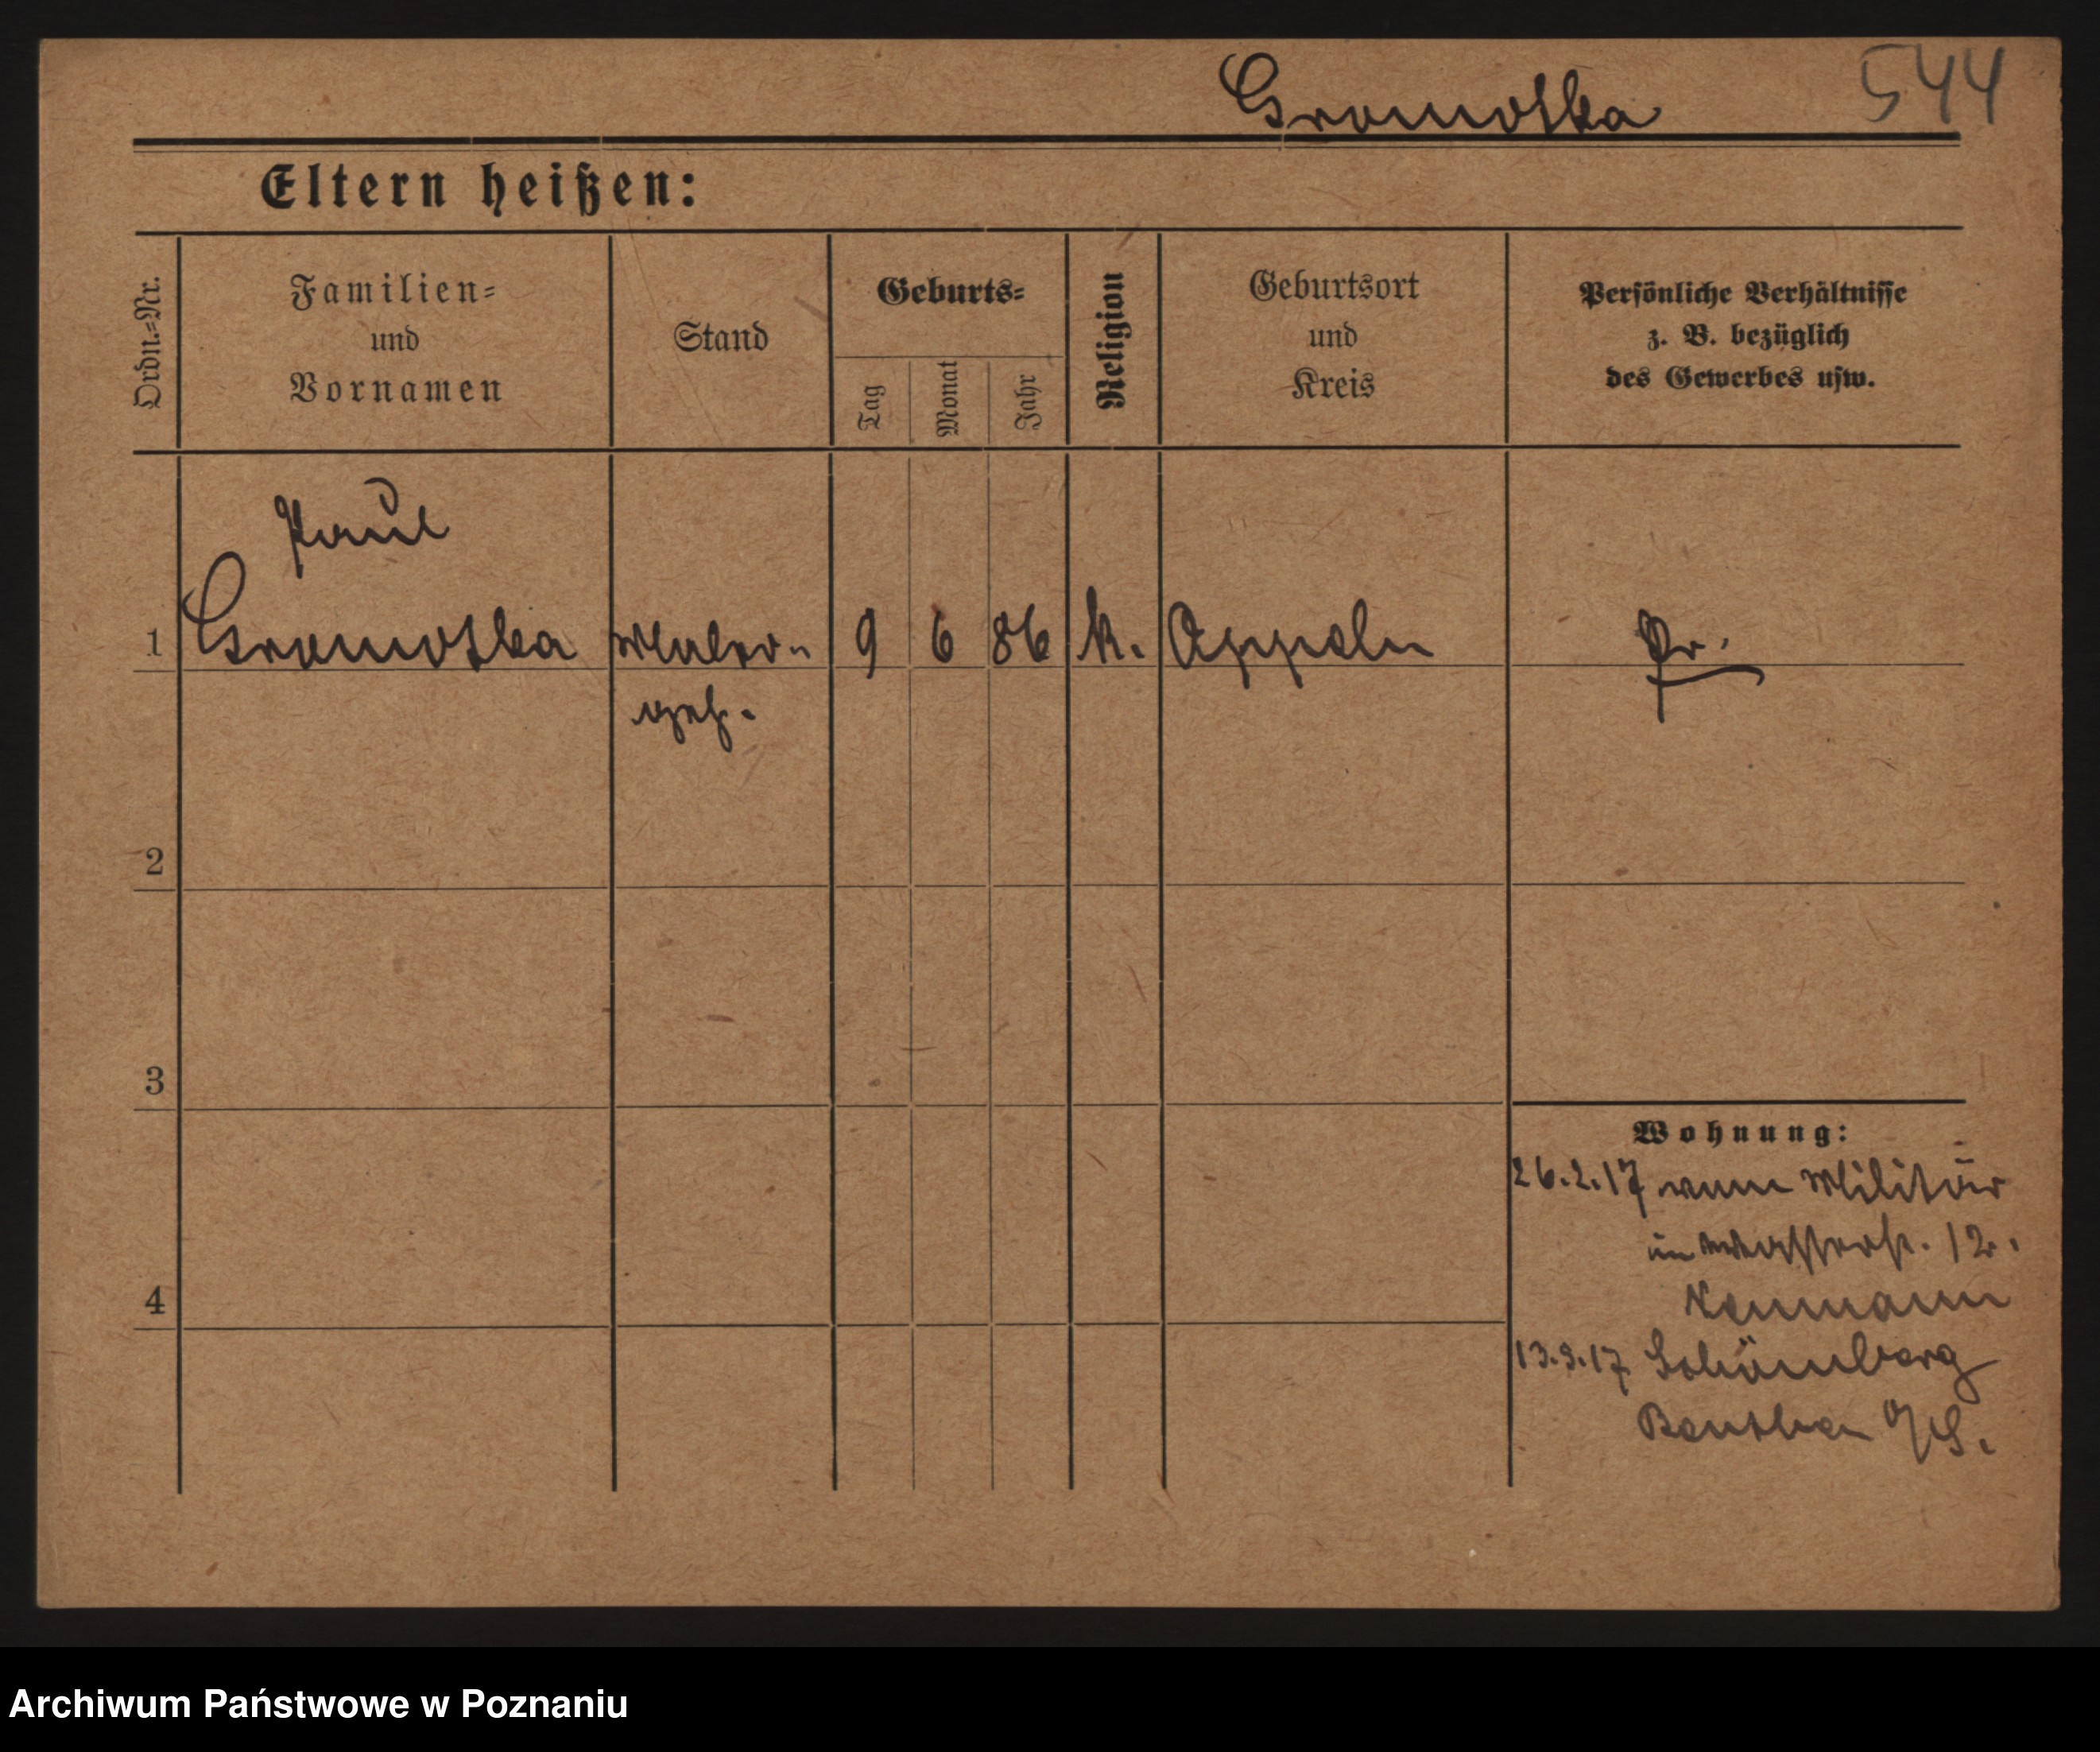 Gromotka 544
Eltern heißen:
Ordn.-Nr.
Familien-
und
Vornamen
Stand
Geburts-
Tag
Monat
Jahr
Religion
Geburtsort
und
Kreis
Persönliche Verhältnisse
z. B. bezüglich
des Gewerbes usw.
Paul
1 Gromotka Maler- 9 6 86 k. Oppeln Pr.
geh.
2
3
4
Wohnung:
26.2.17 vom Militär
in 12.
Neumann
13.3.17 Schömberg
Beuthen O/S.
Archiwum Państwowe w Poznaniu